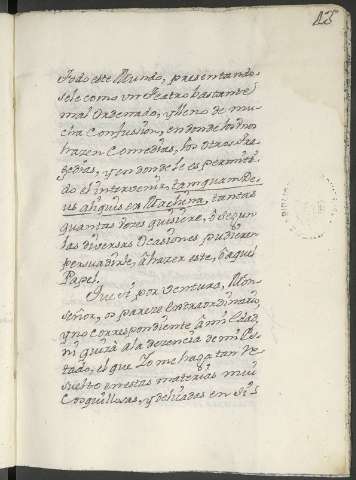 15
todo este Mundo, presentando
sele como un teatro bastante
mal Ordenado, y lleno de mu
cha Confusion, en donde los unos
hazen Comedias, los otros tra
gedias, y en donde le es permiti
do el intervenir, tamquam De
us aliquis ex Machina, tantas
quantas vezes quisiere, o segun
las diversas Ocasiones pudieren
persuadirle, à hazer este, ò aquel
Papel.
Que si por ventura, Mon
Señor, os pareze extraordinario,
y no correspondiente à mi edad,
ni quizà à la dezencia de mi Es
tado, el que Yo me haga tan Re
suelto en estas materias mui
Cosquillosas, y delicadas en sis